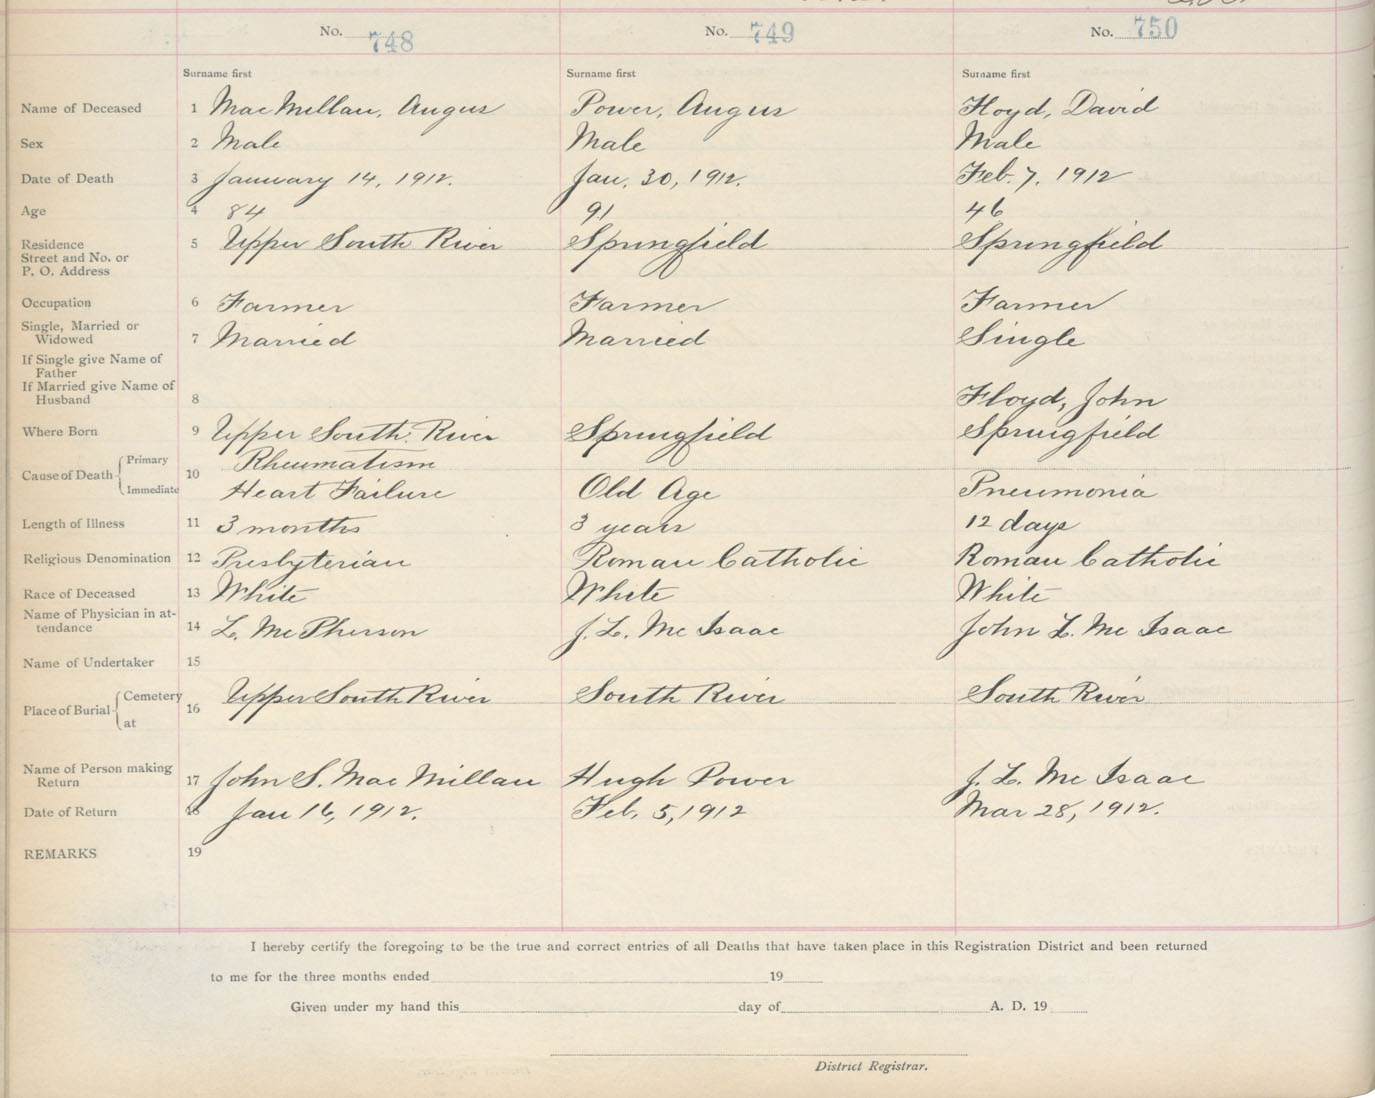 No. 748 No. 749 No. 750
Surname first Surname first Surname first
Name of Deceased 1 MacMillan, Angus Power, Angus Floyd, David
Sex 2 Male Male Male
Date of Death 3 January 14, 1912. Jan. 30, 1912. Feb. 7, 1912
Age 4 84 91 46
Residence 5 Upper South River Springfield Springfield
Street and No. or
P. O. Address
Occupation 6 Farmer Farmer Farmer
Single, Married or
Widowed 7 Married Married Single
If Single give Name of
Father
If Married give Name of
Husband 8 Floyd, John
Where Born 9 Upper South River Springfield Springfield
Cause of Death Primary 10 Rheumatism
Immediate Heart Failure Old Age Pneumonia
Length of Illness 11 3 months 3 years 12 days
Religious Denomination 12 Presbyterian Roman Catholic Roman Catholic
Race of Deceased 13 White White White
Name of Physician in at-
tendance 14 L. McPherson J. L. Mc Isaac John L. Mc Isaac
Name of Undertaker 15
Place of Burial Cemetery 16 Upper South River South River South River
at
Name of Person making
Return 17 John S. MacMillan Hugh Power J. L. Mc Isaac
Date of Return 18 Jan 16, 1912. Feb. 5, 1912 Mar 28, 1912.
REMARKS 19
I hereby certify the foregoing to be the true and correct entries of all Deaths that have taken place in this Registration District and been returned
to me for the three months ended 19
Given under my hand this day of A. D. 19
District Registrar.